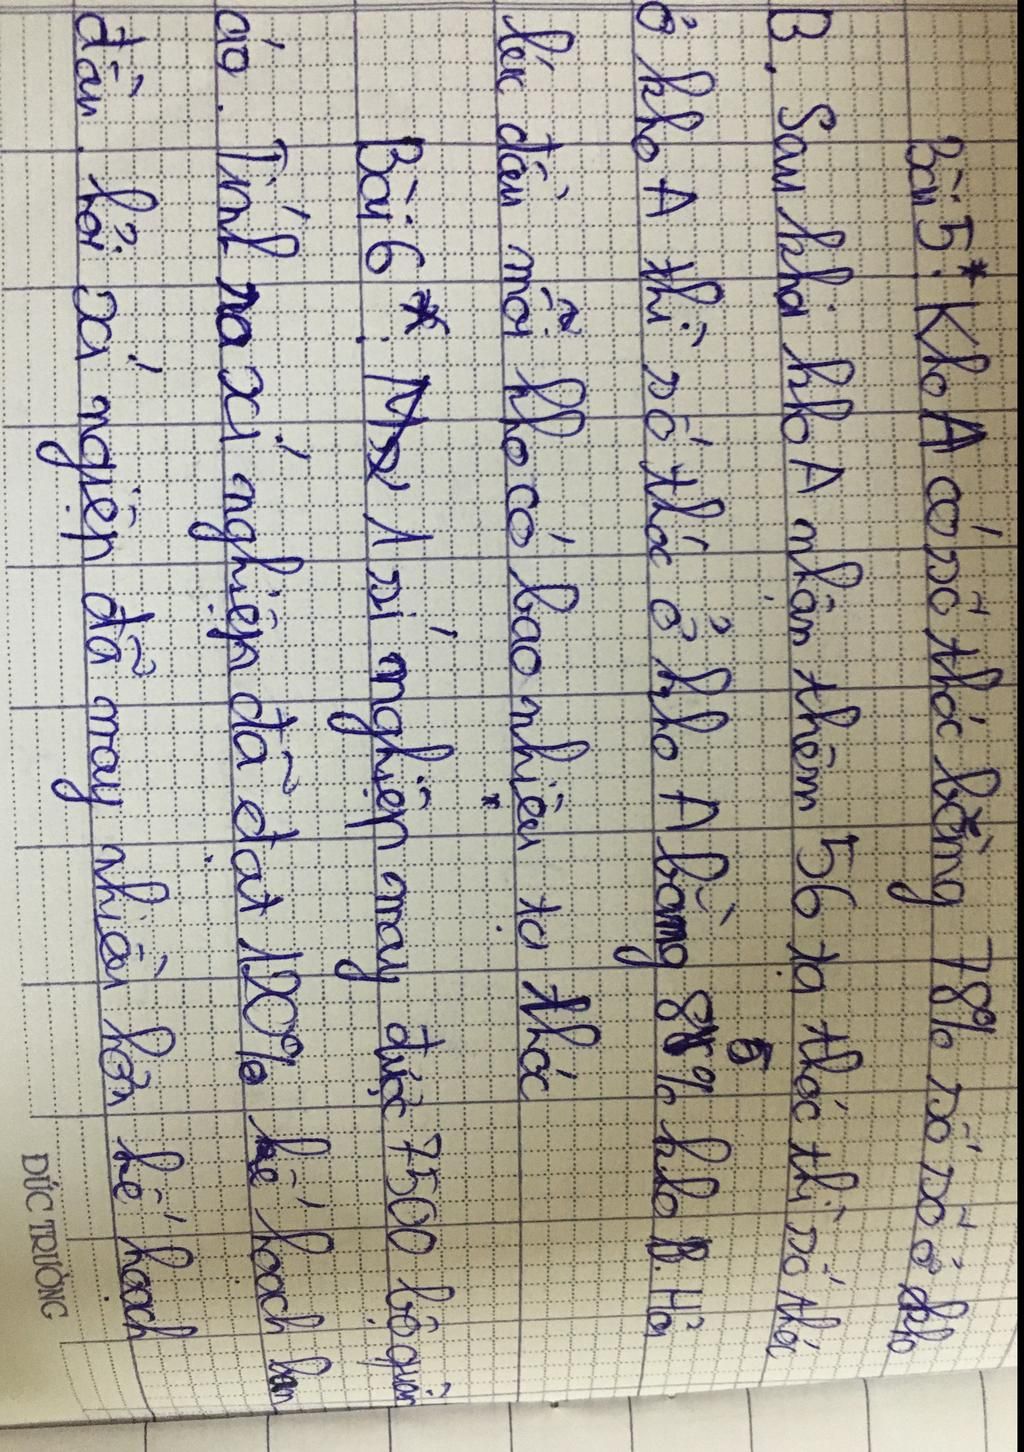 Bài 5*. Kho A có số thóc bằng 78% số số ở kho
B. Sau khi kho A nhận thêm 56 tạ thóc thì số thóc
ở kho A thì số thóc ở kho A bằng 85% kho B. Hỏi
lúc đầu mỗi kho có bao nhiêu tạ thóc
Bài 6*. 1 xí nghiệp may được 7500 bộ quần
áo. Tính ra xí nghiệp đã đạt 120% kế hoạch ban
đầu. hỏi xí ngiệp đã may nhiều hơn kế hoạch
ĐỨC TRƯỜNG